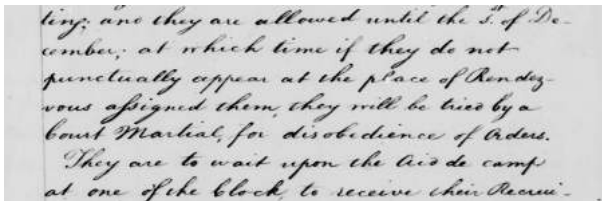 ting; and they are allowed until the 1st. of De-
cember; at which time if they do not
punctually appear at the place of Rendez-
vous assigned them, they will be tried by a
Court Martial, for disobedience of Orders.
They are to wait upon the Aid de camp
at one of the Clock, to receive their Recrui-